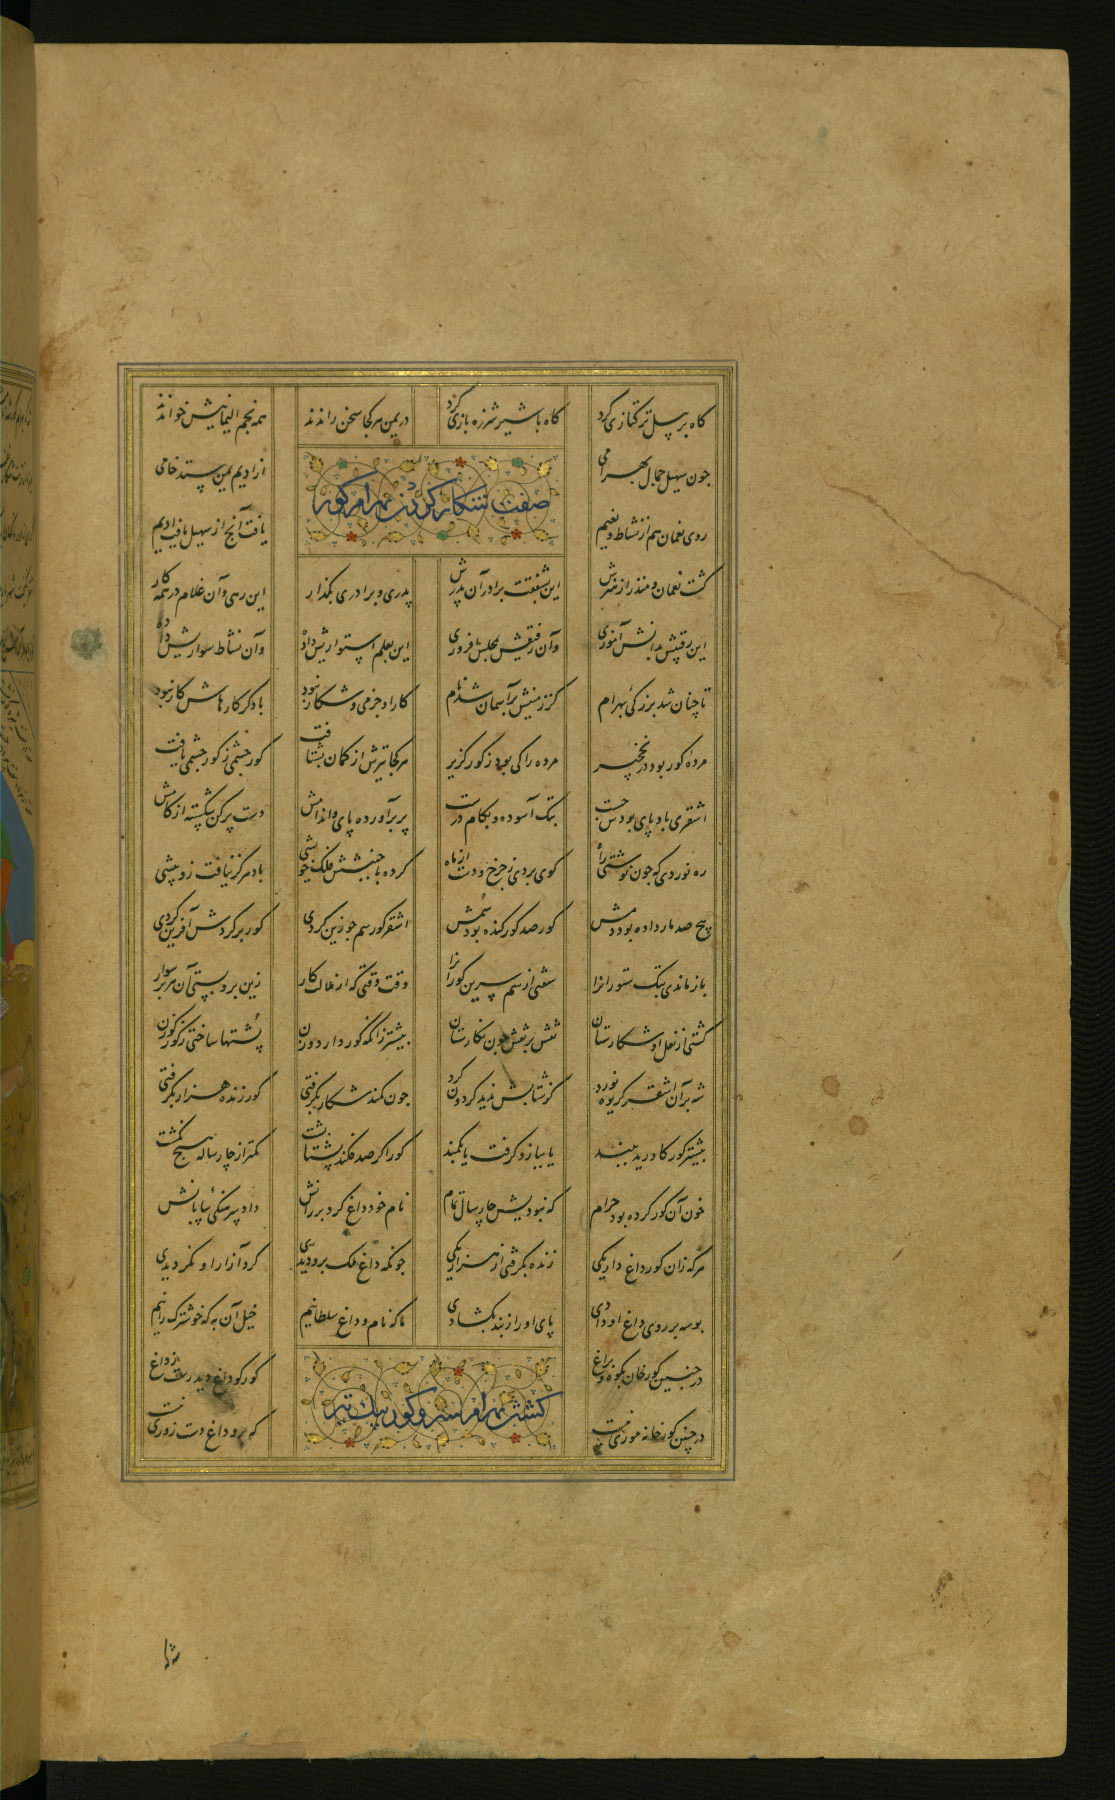 گاه بر پیل ترکتازی کرد گاه با شیر شرزه بازی کرد در یمن هر کجا سخن راندند همه نجم الیمانیش خواندند
صفت شکار کردن بهرام گور
چون سهیل جمال بهرامی از ادیم یمن ستد خامی
روی نعمان هم از نشاط و نعیم یافت آنچ از سهیل یافت ادیم
گشت نعمان و منذر از هنرش این شفقت برادر آن پدرش پدری و برادری بگذار این رهی و آن غلام در همه کار
این رقیبش بدانش آموزی وآن رفیقش بمجلس افروزی این بعلم استواریش داده وآن نشاط سواریش داده
تا چنان شد بزرگی بهرام کز زمینش بر آسمان شد نام کار او جز می و شکار نبود با دگر کارهاش کار نبود
مرده گور بود در نخچیر مرده را کی بود ز گور گزیر هر کجا تیرش از کمان بشتافت گور چشمی ز گور چشمی یافت
اشقری باد پای بودش چست بتک آسوده و بگام درست پر برآورده پای و اندامش دست پر کن شکسته از گامش
ره نوردی که چون نوشتی راه گوی بردی ز چرخ و دست از ماه کرده با جنبش فلک خویشی باد هرگز نیافت زو پیشی
پیچ صد مار داده بود دمش گور صد گور کنده بود سمش اشقر گور سم چو زین کردی گور بر گردش آفرین کردی
باز ماندی بتک ستوران را سفتی از سم سرین گوران را وقت وقتی که از ملالت کار زین بر و بستی آن هژبر سوار
گشتی از نعل او شکارستان نقش بر نقش چون نگارستان بیشتر زانکه گور دارد ون پشتها ساختی ز گور گوزن
شه بر آن اشقر گریوه نورد کز شتابش ندید گردون گرد چون کمند شکار بگرفتی گور زنده هزار بگرفتی
بیشتر گور کاورید ببند یا ببازو گرفت یا بکمند گور اگر صد فکند پشتاپشت کمتر از چارساله هیچ نکشت
خون آن گور کرده بود حرام که نبودیش چار سال تمام نام خود داغ کرد بر رانش داد سرهنگی بیابانش
هر که زان گور داغ دار یکی زنده بگرفتی از هزار یکی چونکه داغ ملک برو دیدی گرد آزار او نگردیدی
بوسه بر روی داغ او دادی پای او را ز بند بگشادی ما که نام و داغ سلطانیم خیل آن به که خوشترک رانیم
کشتن بهرام شیر و گور بیک تیر
در چنین گورخان بکوه و براغ گور کو داغ دید رست ز داغ
در چنین گورخانه موری نیست که برو داغ دست زوری نیست
شا